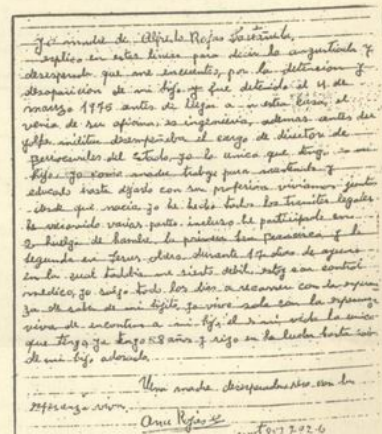 Yo madre de Alfredo Rojas Castañeda,
explico en estas lineas para decir lo angustiada y
desesperada que me encuentro, por la detencion y
desaparicion de mi hijo, fue detenido el 4 de
marzo 1975 antes de llegar a nuestra casa, el
venia de su oficina, es ingeniero, ademas antes del
golpe militar desempeñaba el cargo de director de
Ferrocarriles del Estado, yo lo unico que tengo es mi
hijo yo como madre trabaje para mantenerlo y
educarlo hasta dejarlo con su profesion viviamos juntos
desde que nacio yo he hecho todos los tramites legales
he recorrido varias partes incluso he participado en
2 huelga de hambre la primera San Francisco y la
segunda en Jesus Obrero durante 17 dias de ayuno
en la cual todabia me siento debil, estoy en control
medico, yo salgo todos los dias a recorrer con la esperan
za de saber de mi hijito, yo vivo sola con la esperanza
viva de encontrar a mi hijo, el es mi vida lo unico
que tengo, ya tengo 68 años y sigo en la lucha hasta
de mi hijo adorado
Una madre desesperada con la
esperanza viva
Ana Rojas